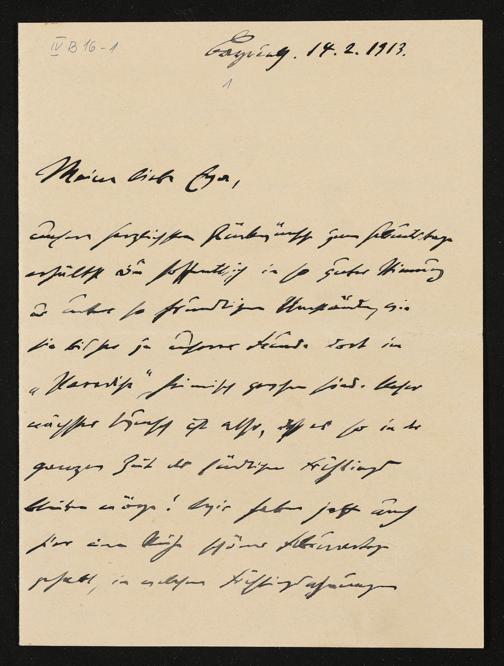 IV B 16-1
Bayreuth. 14.2.1913.
1
Meine liebe
unsere herzlichsten Glückwünsche zum Geburtstage
erhältst Du hoffentlich in so guter Stimmung
u. unter so freundlichen Umständen, wie
sie bisher ja unserer Freunde dort im
" " heimisch gewesen sind. Unser
nächster Wunsch ist also, daß es so in der
ganzen Zeit des südlichen Frühlings
bleiben möge! Wir haben jetzt auch
hier eine Reihe schöner Februartage
gehabt, in welchen Frühlingsahnungen